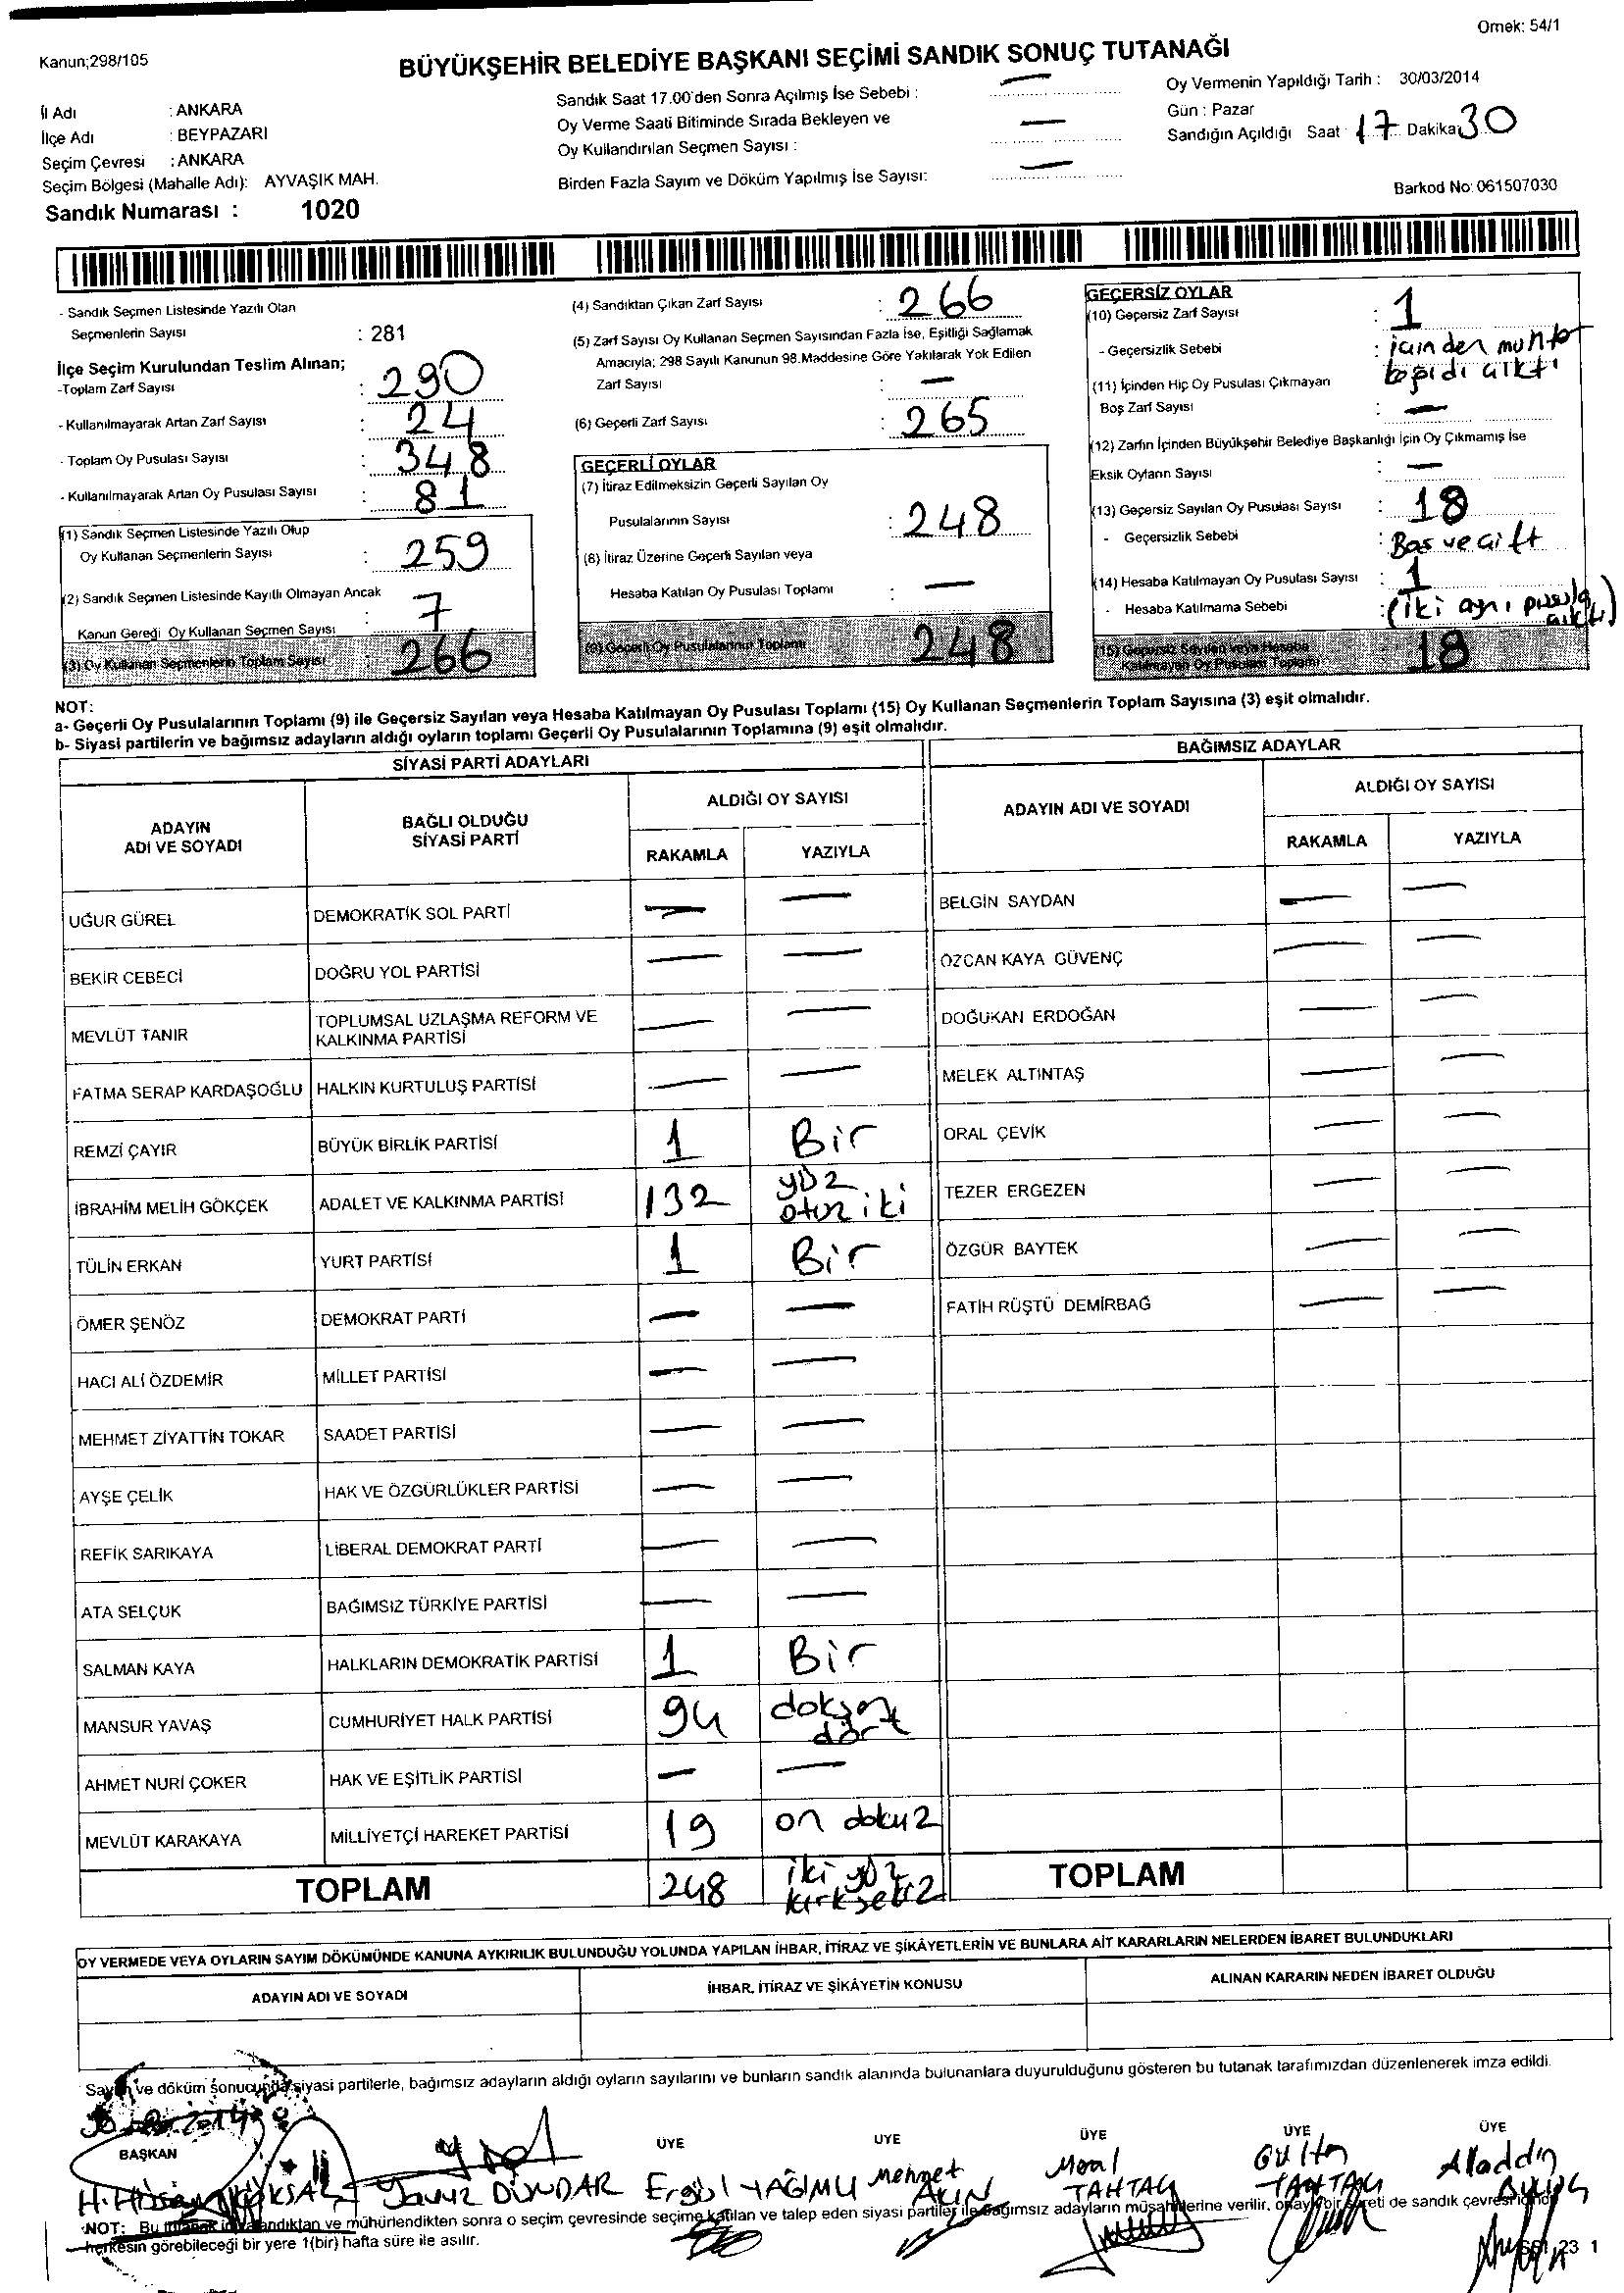 Örnek: 54/1
Kanun;298/105
BÜYÜKŞEHİR BELEDİYE BAŞKANI SEÇİMİ SANDIK SONUÇ TUTANAĞI
İl Adı : ANKARA
İlçe Adı : BEYPAZARI
Seçim Çevresi : ANKARA
Seçim Bölgesi (Mahalle Adı): AYVAŞIK MAH.
Sandık Numarası : 1020
Sandık Saat 17.00'den Sonra Açılmış İse Sebebi : —
Oy Verme Saati Bitiminde Sırada Bekleyen ve
Oy Kullandırılan Seçmen Sayısı : —
Birden Fazla Sayım ve Döküm Yapılmış İse Sayısı: —
Oy Vermenin Yapıldığı Tarih : 30/03/2014
Gün : Pazar
Sandığın Açıldığı Saat 17 Dakika 30
Barkod No: 061507030
- Sandık Seçmen Listesinde Yazılı Olan
Seçmenlerin Sayısı : 281
İlçe Seçim Kurulundan Teslim Alınan;
-Toplam Zarf Sayısı : 290
- Kullanılmayarak Artan Zarf Sayısı : 24
- Toplam Oy Pusulası Sayısı : 348
- Kullanılmayarak Artan Oy Pusulası Sayısı : 81
(1) Sandık Seçmen Listesinde Yazılı Olup
Oy Kullanan Seçmenlerin Sayısı : 259
(2) Sandık Seçmen Listesinde Kayıtlı Olmayan Ancak
Kanun Gereği Oy Kullanan Seçmen Sayısı : 7
(3) Oy Kullanan Seçmenlerin Toplam Sayısı : 266
(4) Sandıktan Çıkan Zarf Sayısı : 266
(5) Zarf Sayısı Oy Kullanan Seçmen Sayısından Fazla İse, Eşitliği Sağlamak
Amacıyla; 298 Sayılı Kanunun 98.Maddesine Göre Yakılarak Yok Edilen
Zarf Sayısı : —
(6) Geçerli Zarf Sayısı : 265
GEÇERLİ OYLAR
(7) İtiraz Edilmeksizin Geçerli Sayılan Oy
Pusulalarının Sayısı : 248
(8) İtiraz Üzerine Geçerli Sayılan veya
Hesaba Katılan Oy Pusulası Toplamı : —
(9) Geçerli Oy Pusulalarının Toplamı 248
GEÇERSİZ OYLAR
(10) Geçersiz Zarf Sayısı : 1
- Geçersizlik Sebebi : içinden muhtar
çıktı
(11) İçinden Hiç Oy Pusulası Çıkmayan
Boş Zarf Sayısı : —
(12) Zarfın İçinden Büyükşehir Belediye Başkanlığı İçin Oy Çıkmamış İse
Eksik Oyların Sayısı : —
(13) Geçersiz Sayılan Oy Pusulası Sayısı : 18
- Geçersizlik Sebebi : Boş ve çift
(14) Hesaba Katılmayan Oy Pusulası Sayısı : 1
- Hesaba Katılmama Sebebi : (iki ayrı pusula
çıktı)
(15) Geçersiz Sayılan veya Hesaba
Katılmayan Oy Pusulası Toplamı 18
NOT:
a- Geçerli Oy Pusulalarının Toplamı (9) ile Geçersiz Sayılan veya Hesaba Katılmayan Oy Pusulası Toplamı (15) Oy Kullanan Seçmenlerin Toplam Sayısına (3) eşit olmalıdır.
b- Siyasi partilerin ve bağımsız adayların aldığı oyların toplamı Geçerli Oy Pusulalarının Toplamına (9) eşit olmalıdır.
SİYASİ PARTİ ADAYLARI
ADAYIN ADI VE SOYADI BAĞLI OLDUĞU SİYASİ PARTİ ALDIĞI OY SAYISI
RAKAMLA YAZIYLA
UĞUR GÜREL DEMOKRATİK SOL PARTİ — —
BEKİR CEBECİ DOĞRU YOL PARTİSİ — —
MEVLÜT TANIR TOPLUMSAL UZLAŞMA REFORM VE KALKINMA PARTİSİ — —
FATMA SERAP KARDAŞOĞLU HALKIN KURTULUŞ PARTİSİ — —
REMZİ ÇAYIR BÜYÜK BİRLİK PARTİSİ 1 Bir
İBRAHİM MELİH GÖKÇEK ADALET VE KALKINMA PARTİSİ 132 yüz otuz iki
TÜLİN ERKAN YURT PARTİSİ 1 Bir
ÖMER ŞENÖZ DEMOKRAT PARTİ — —
HACI ALİ ÖZDEMİR MİLLET PARTİSİ — —
MEHMET ZİYATTİN TOKAR SAADET PARTİSİ — —
AYŞE ÇELİK HAK VE ÖZGÜRLÜKLER PARTİSİ — —
REFİK SARIKAYA LİBERAL DEMOKRAT PARTİ — —
ATA SELÇUK BAĞIMSIZ TÜRKİYE PARTİSİ — —
SALMAN KAYA HALKLARIN DEMOKRATİK PARTİSİ 1 Bir
MANSUR YAVAŞ CUMHURİYET HALK PARTİSİ 94 doksan dört
AHMET NURİ ÇOKER HAK VE EŞİTLİK PARTİSİ — —
MEVLÜT KARAKAYA MİLLİYETÇİ HAREKET PARTİSİ 19 on dokuz
TOPLAM 248 iki yüz kırksekiz
BAĞIMSIZ ADAYLAR
ADAYIN ADI VE SOYADI ALDIĞI OY SAYISI
RAKAMLA YAZIYLA
BELGİN SAYDAN — —
ÖZCAN KAYA GÜVENÇ — —
DOĞUKAN ERDOĞAN — —
MELEK ALTINTAŞ — —
ORAL ÇEVİK — —
TEZER ERGEZEN — —
ÖZGÜR BAYTEK — —
FATİH RÜŞTÜ DEMİRBAĞ — —
TOPLAM
OY VERMEDE VEYA OYLARIN SAYIM DÖKÜMÜNDE KANUNA AYKIRILIK BULUNDUĞU YOLUNDA YAPILAN İHBAR, İTİRAZ VE ŞİKÂYETLERİN VE BUNLARA AİT KARARLARIN NELERDEN İBARET BULUNDUKLARI
ADAYIN ADI VE SOYADI İHBAR, İTİRAZ VE ŞİKÂYETİN KONUSU ALINAN KARARIN NEDEN İBARET OLDUĞU
Sayım ve döküm sonucunda siyasi partilerle, bağımsız adayların aldığı oyların sayılarını ve bunların sandık alanında bulunanlara duyurulduğunu gösteren bu tutanak tarafımızdan düzenlenerek imza edildi.
BAŞKAN ÜYE ÜYE ÜYE ÜYE ÜYE
Yavuz DÜNDAR Ergül YAĞIMLI Mehmet AKIN Meral TAHTACI Gülten TAHTACI Aladdin
NOT: Bu tutanak imzalandıktan ve mühürlendikten sonra o seçim çevresinde seçime katılan ve talep eden siyasi partiler ile bağımsız adayların müşahitlerine verilir, onaylı bir sureti de sandık çevresi içinde
herkesin görebileceği bir yere 1(bir) hafta süre ile asılır.